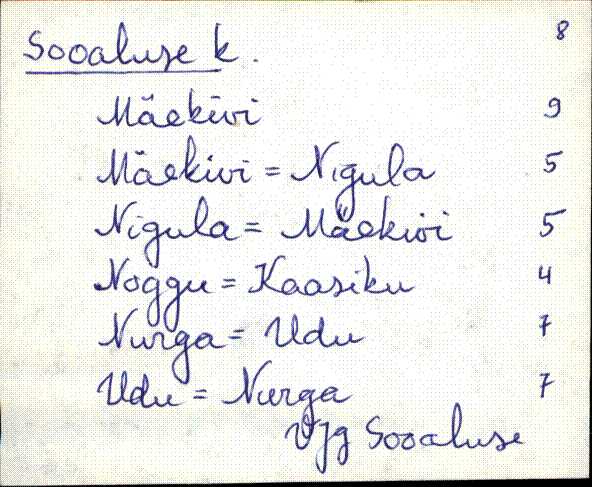 8
Sooaluse k.
Mäekivi 9
Mäekivi = Nigula 5
Nigula = Mäekivi 5
Noggu = Kaasiku 4
Nurga = Udu 7
Udu = Nurga 7
Vjg Sooaluse